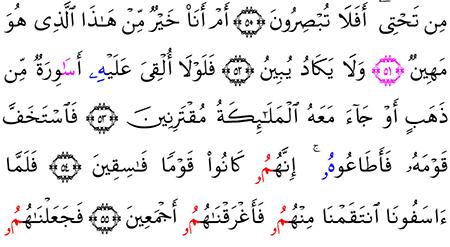 مِن تَحْتِىَ ۚ أَفَلَا تُبْصِرُونَ ٥٠ أَمْ أَنَا۠ خَيْرٌ مِّنْ هَٰذَا ٱلَّذِى هُوَ
مَهِينٌ ٥١ وَلَا يَكَادُ يُبِينُ ٥٢ فَلَوْلَا أُلْقِىَ عَلَيْهِۦ أَسَٰوِرَةٌ مِّن
ذَهَبٍ أَوْ جَآءَ مَعَهُ ٱلْمَلَٰٓئِكَةُ مُقْتَرِنِينَ ٥٣ فَٱسْتَخَفَّ
قَوْمَهُۥ فَأَطَاعُوهُۥ ۚ إِنَّهُمُۥ كَانُوا۟ قَوْمًا فَٰسِقِينَ ٥٤ فَلَمَّا
ءَاسَفُونَا ٱنتَقَمْنَا مِنْهُمُۥ فَأَغْرَقْنَٰهُمُۥ أَجْمَعِينَ ٥٥ فَجَعَلْنَٰهُمُۥ